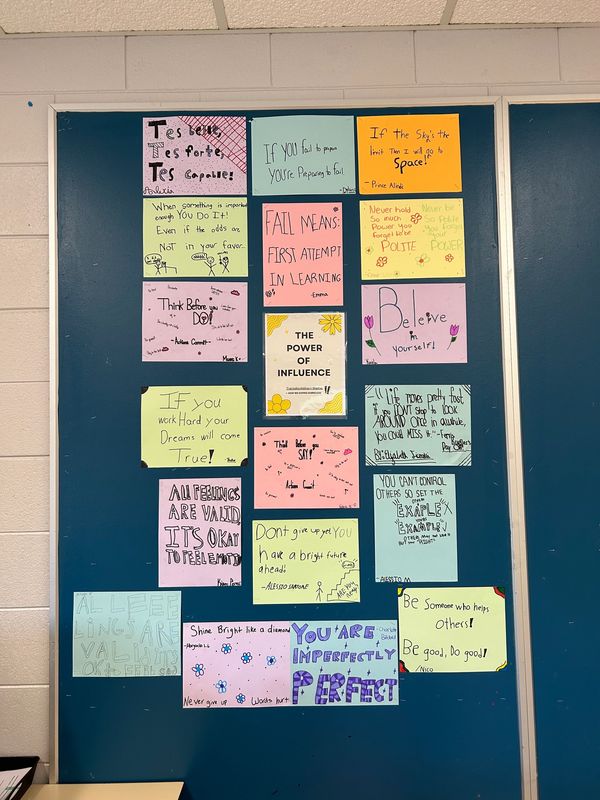 Tes belle,
Tes forte,
Tes Capable!
If YOU fail to prepare
you're Preparing to fail
If the Sky's the
limit Then I will go to
Space!
- Prince Alindi
When something is important
enough YOU Do It!
Even if the odds are
NOT in your favor.
FAIL MEANS:
FIRST ATTEMPT
IN LEARNING
-Emma
Never hold
So much
Power you
forget to be
POLITE
Never be
So Polite
you forget
your
POWER
Think Before you
DO!
Beleive
in
yourself!
THE
POWER
OF
INFLUENCE
If you
work Hard your
Dreams will come
True!
Think Before you
SAY!
"Life moves pretty fast
if you DON'T stop to LOOK
AROUND once in awhile,
you COULD MISS it."
ALL FEELINGS
ARE VALID,
ITS OKAY
TO FEEL EMOTION
YOU CAN'T CONTROL
OTHERS SO SET THE
EXAPLE
EXAMPLE
-ALESSIO M
Dont give up yet You
have a bright future
ahead!
-ALESSIO
ALL FEE
LINGS ARE
VALID
Shine Bright like a diamond
Never give up
Words hurt
YOU ARE
IMPERFECTLY
PERFECT
Be Someone who helps
Others!
Be good, Do good!
/Nico